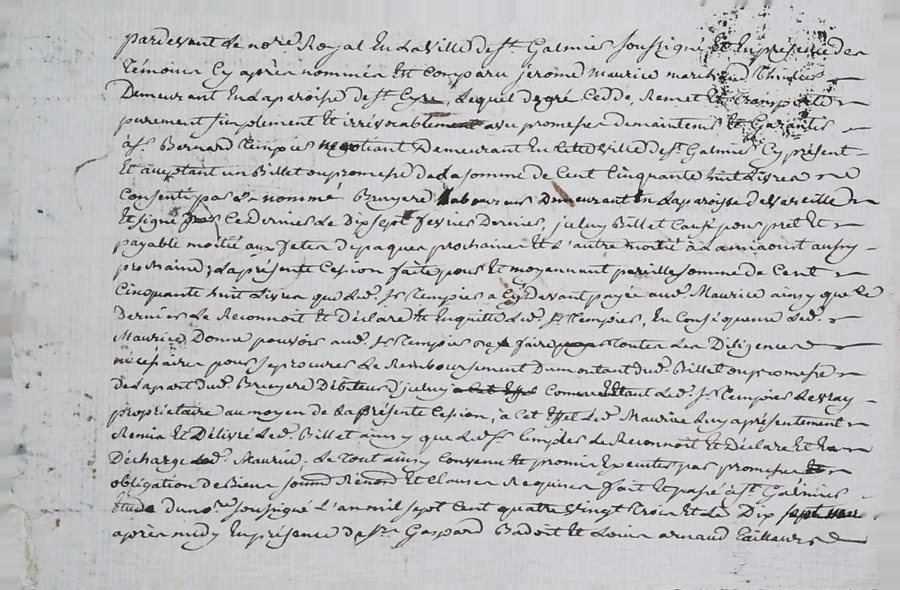 pardevant Le no.re Royal En La Ville de S.t Galmier soussigné Et En presence des
témoins Cy après nommés Est Comparu jerome maurice marchand
Demeurant En La paroisse de S.t Cyre, Lequel de gré Cedde, Remet Et transporte
purement simplement Et irrévocablement avec promesses de maintenir Et Garantir
à S.r Bernard Tempier negotiant Demeurant En Cette ville de S.t Galmier Cy présent
Et acceptant un Billet ou promesse de La somme de Cent Cinquante huit Livres
Consenti par nommé Bruyere Laboureur Demeurant En La paroisse de Vereille
Et signé Ce dernier Le Dix sept fevrier Dernier, jceluy Billet Causé pour pret Et
payable moitié aux fetes de paques prochaines Et L'autre moitié à La miaoust aussy
prochaine; La présente Cession faite pour Et moyennant pareille somme de Cent
Cinquante huit Livres que Led. S.r Tempier a Cy Devant payée aud. Maurice ainsy que Ce
Dernier Le Reconnoit Et Déclare Et En quitte Led. S.r Tempier, En Conséquence Led.
Maurice Donne pouvoir aud. S.r Tempier faire Toutes Les Diligences
nécessaires pour se procurer Le Remboursement Du montant dud. Billet ou promesse
de La part dud. Bruyere Débiteur d'jceluy a Cet Effet Comme Etant Led. S.r Tempier Le vray
propriétaire au moyen de La présente Cession, à Cet Effet Led. Maurice Luy a présentement
Remis Et Délivré Led. Billet ainsy que Led. S.r Tempier Le Reconnoit Et Déclare Et En
Décharge Led. Maurice, Le Tout ainsy Convenu Et promis Executer par promesse Et
obligation de Biens soum Renon Et Clauses Requises fait Et passé à S.t Galmier
Etude du no.re soussigné L'an mil sept Cent quatre vingt Trois Et Le Dix sept
après midy En présence de S.r Gaspard Badoit Et Louis arnaud Tailleurs